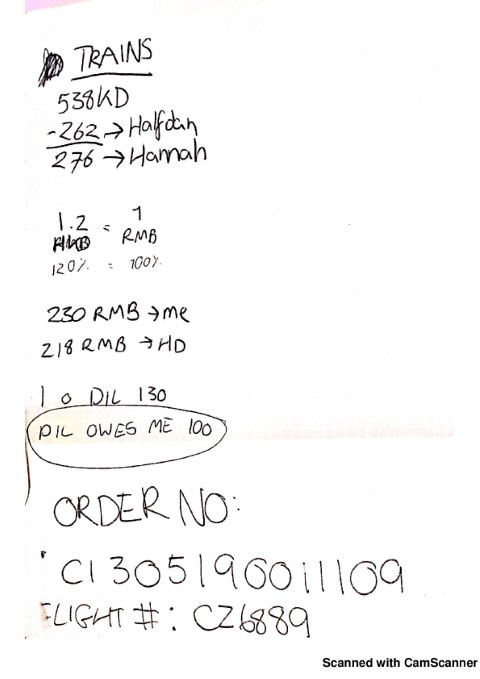 TRAINS
538KD
-262→Halfdan
276→Hannah
1.2 = 1
RMB
120% = 100%
230 RMB→me
218 RMB→HD
I o DIL 130
DIL OWES ME 100
ORDER NO:
C1305190011109
FLIGHT #: CZ6889
Scanned with CamScanner